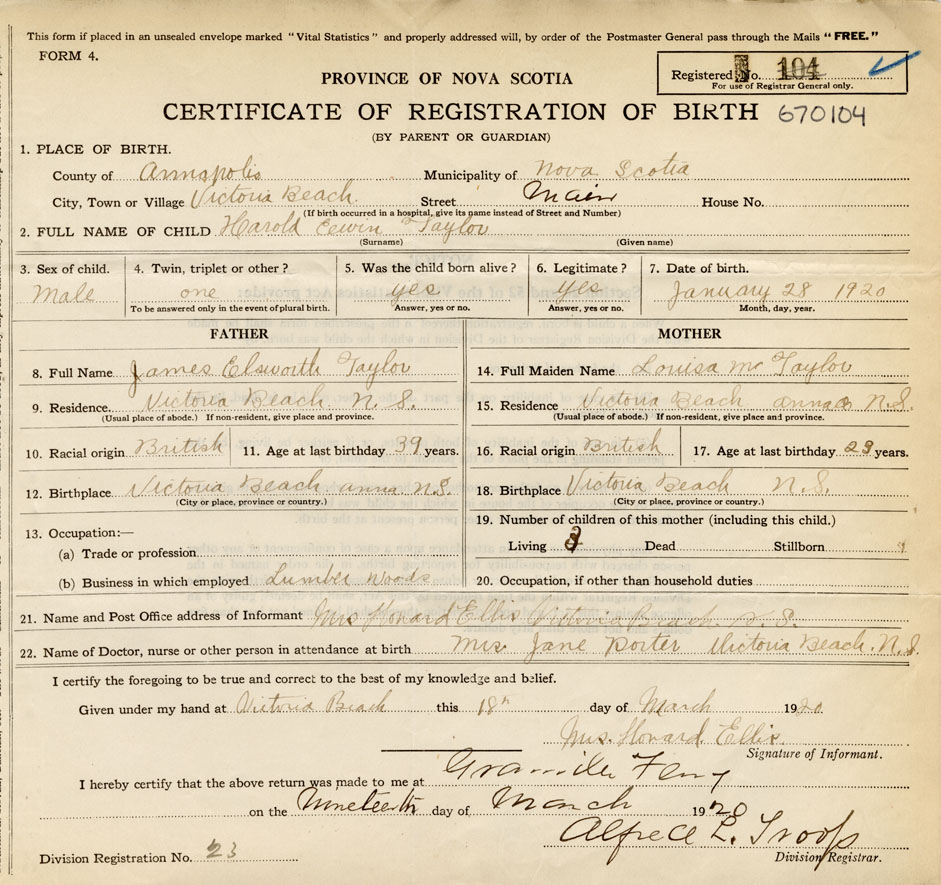 This form if placed in an unsealed envelope marked "Vital Statistics" and properly addressed will, by order of the Postmaster General pass through the Mails "FREE."
FORM 4.
Registered No. 104
For use of Registrar General only.
PROVINCE OF NOVA SCOTIA
CERTIFICATE OF REGISTRATION OF BIRTH 670104
(BY PARENT OR GUARDIAN)
1. PLACE OF BIRTH.
County of Annapolis Municipality of Nova Scotia
City, Town or Village Victoria Beach Street Main House No.
(If birth occurred in a hospital, give its name instead of Street and Number)
2. FULL NAME OF CHILD Harold Taylor
(Surname) (Given name)
3. Sex of child. 4. Twin, triplet or other? 5. Was the child born alive? 6. Legitimate? 7. Date of birth.
Male one yes yes January 28 1920
To be answered only in the event of plural birth. Answer, yes or no. Answer, yes or no. Month, day, year.
FATHER MOTHER
8. Full Name James Elsworth Taylor 14. Full Maiden Name Louisa Mc Taylor
9. Residence Victoria Beach. N.S. 15. Residence Victoria Beach N.S.
(Usual place of abode.) If non-resident, give place and province. (Usual place of abode.) If non-resident, give place and province.
10. Racial origin British 11. Age at last birthday 39 years. 16. Racial origin British 17. Age at last birthday 23 years.
12. Birthplace Victoria Beach anna. N.S. 18. Birthplace Victoria Beach N.S.
(City or place, province or country.) (City or place, province or country.)
13. Occupation:— 19. Number of children of this mother (including this child.)
(a) Trade or profession Living Dead Stillborn
(b) Business in which employed Lumber woods 20. Occupation, if other than household duties
21. Name and Post Office address of Informant Mrs Howard Ellis Victoria Beach. N.S.
22. Name of Doctor, nurse or other person in attendance at birth Mrs. Jane Porter Victoria Beach. N.S.
I certify the foregoing to be true and correct to the best of my knowledge and belief.
Given under my hand at Victoria Beach this 18th day of March 1920
Mrs. Howard Ellis
Signature of Informant.
I hereby certify that the above return was made to me at Granville Ferry
on the Nineteenth day of March 1920
Alfred L. Troop
Division Registration No. 23 Division Registrar.